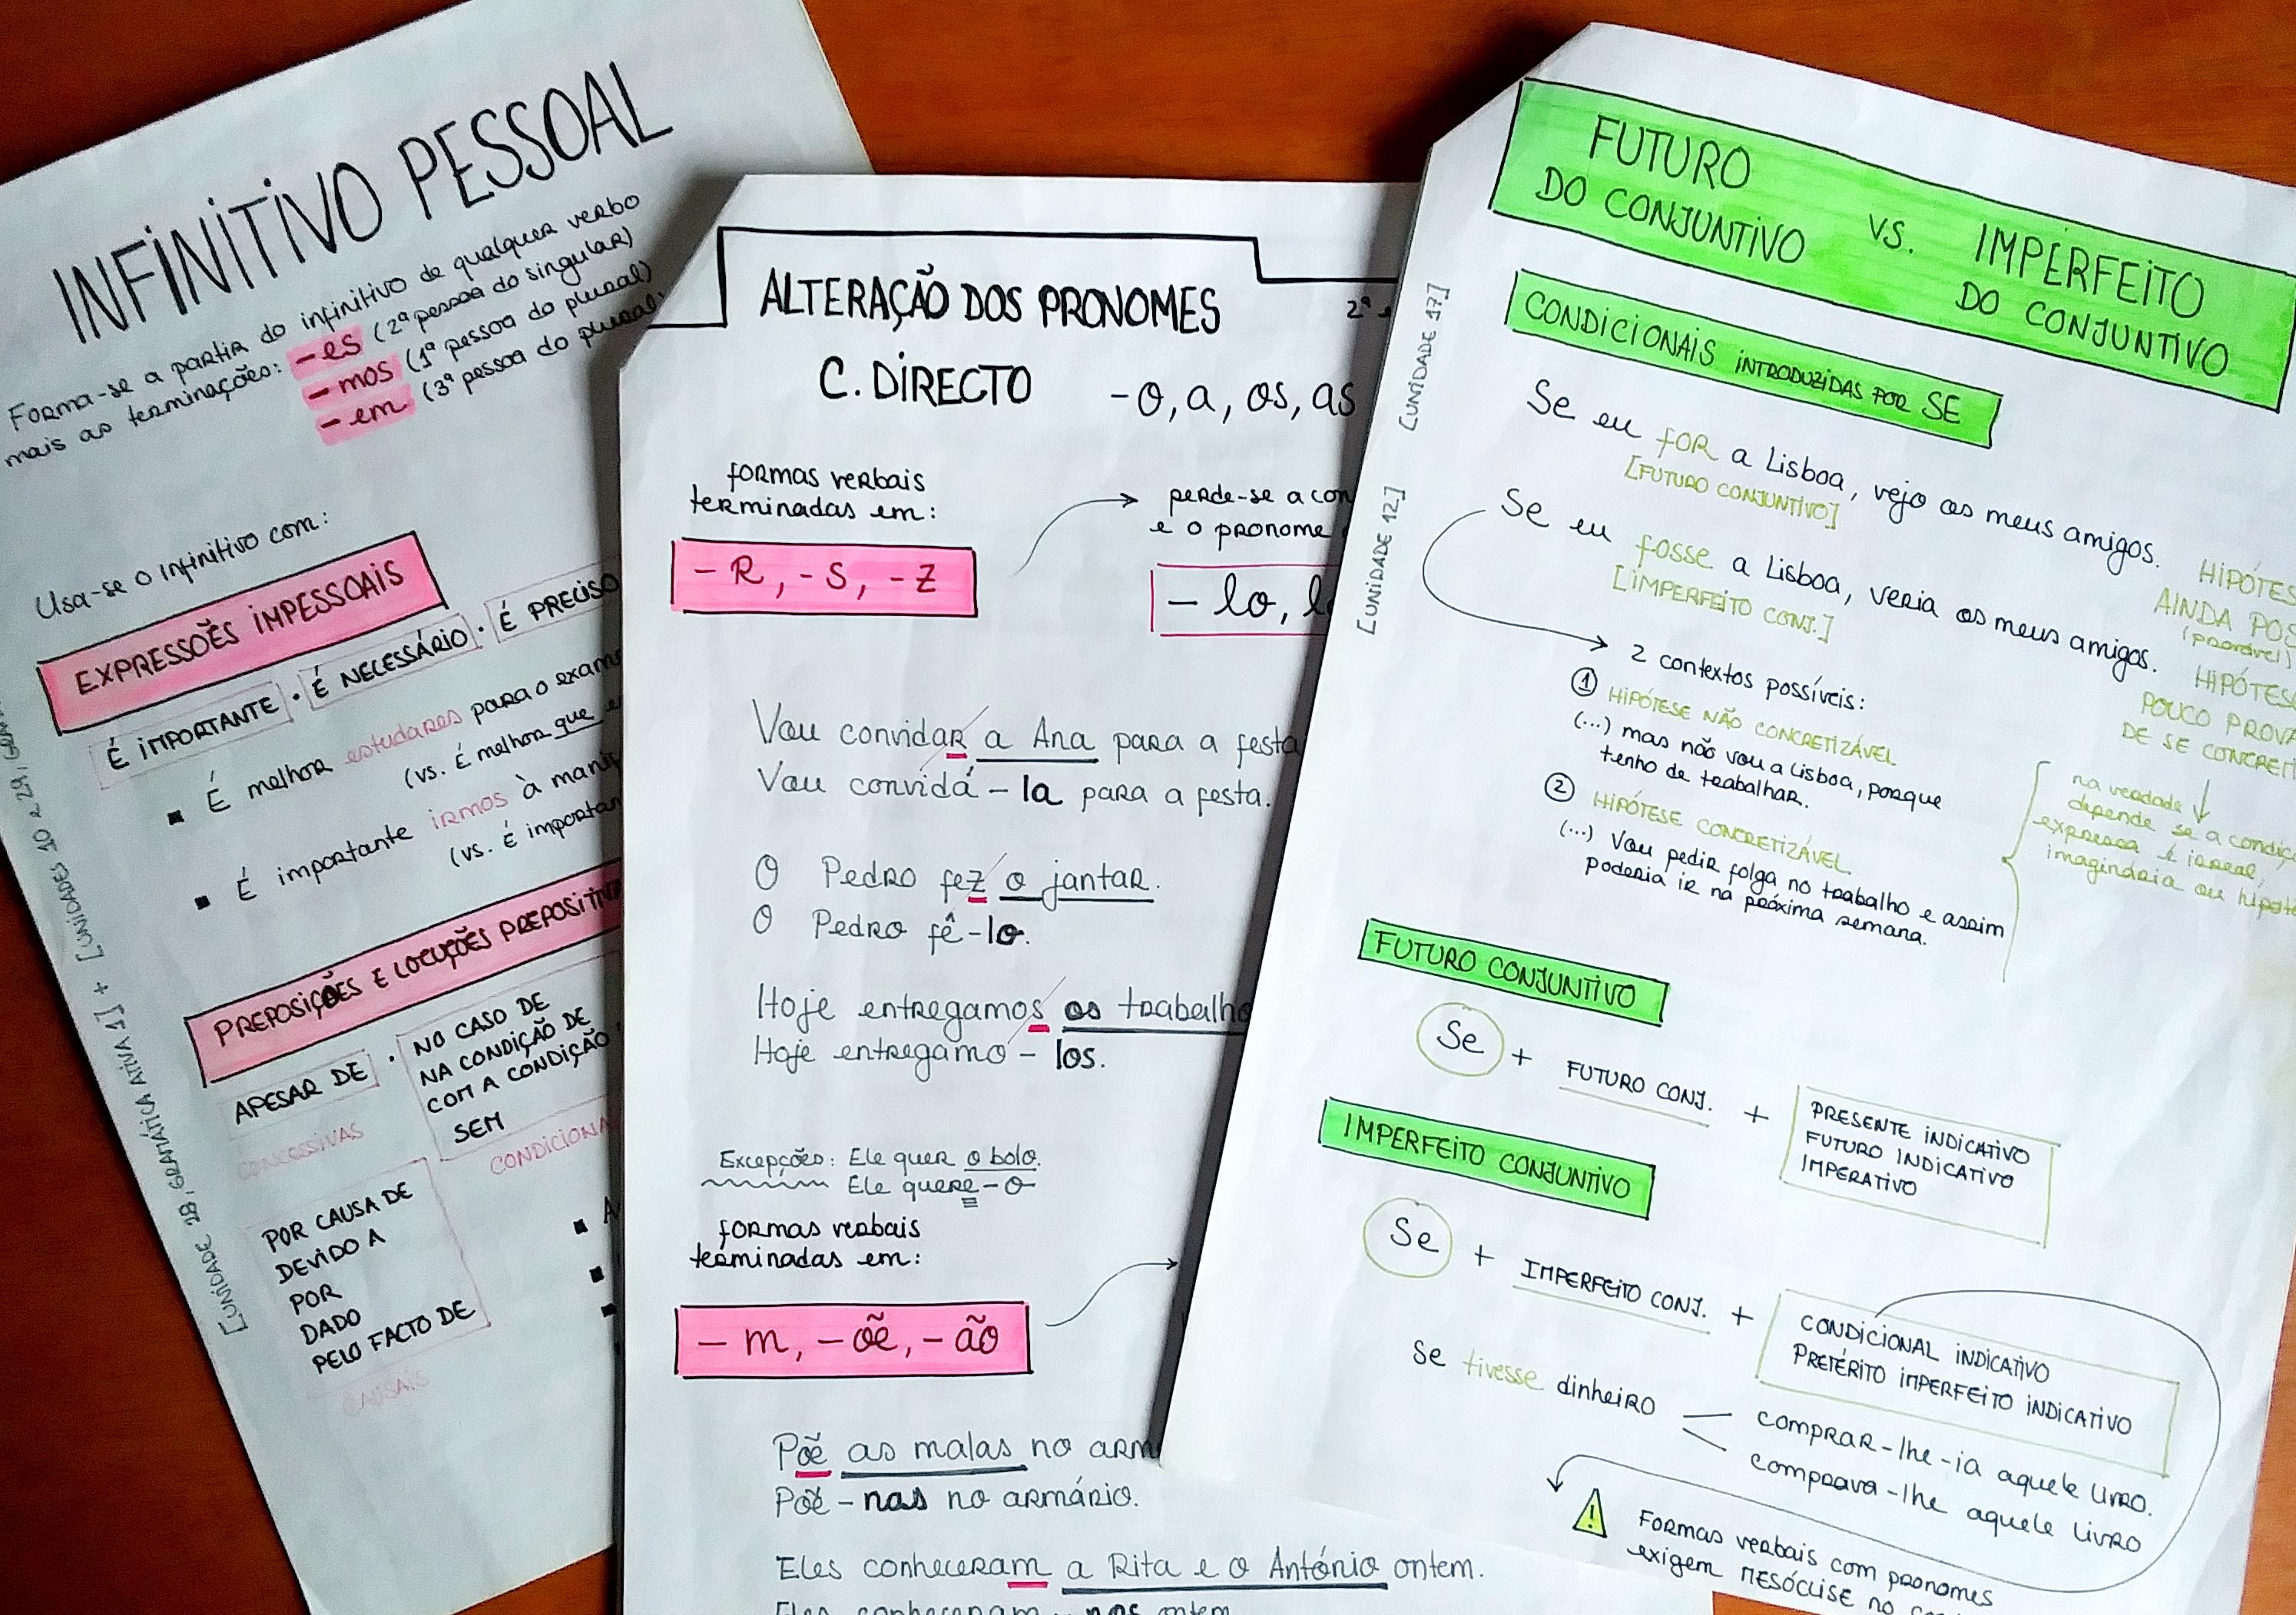 INFINITIVO PESSOAL
Forma-se a partir do infinitivo de qualquer verbo
mais as terminações: -es (2ª pessoa do singular)
-mos (1ª pessoa do plural)
-em (3ª pessoa do plural)
Usa-se o Infinitivo com:
EXPRESSOẼS IMPESSOAIS
É IMPORTANTE · É NECESSÁRIO · É PRECISO
É melhor estudares para o exame
(vs. É melhor que
É importante irmos à
(vs. É importan
PREPOSIÇÕES E LOCUÇÕES
APESAR DE ·
CONCESSIVAS
NO CASO DE
NA CONDIÇÃO DE
COM A CONDIÇÃO
SEM
CONDICIONA
POR CAUSA DE
DEVIDO A
POR
DADO
PELO FACTO DE
CAUSAIS
[UNIDADE 1B, GRAMÁTICA ATIVA 1] + [UNIDADES 10 e 29,
ALTERAÇÃO DOS PRONOMES
2ª
C. DIRECTO -o, a, os, as
formas verbais
terminadas em:
-R, -S, -Z
perde-se a con
e o pronome
-lo,
Vou convidar a Ana para a festa
Vou convidá-la para a festa.
O Pedro fez o jantar.
O Pedro fê-lo.
Hoje entregamos os trabalho
Hoje entregamo-los.
Excepções: Ele quer o bolo.
Ele quere-o
formas verbais
terminadas em:
-m, -õe, -ão
Põe as malas no arm
Põe-nas no armário.
Eles conheceram a Rita e o António ontem.
Eles conheceram-nos ontem
FUTURO
DO CONJUNTIVO
VS.
IMPERFEITO
DO CONJUNTIVO
[UNIDADE 17]
[UNIDADE 12]
CONDICIONAIS INTRODUZIDAS POR SE
Se eu FOR a Lisboa, vejo os meus amigos.
[FUTURO CONJUNTIVO]
HIPÓTES
AINDA POS
(provável)
Se eu fosse a Lisboa, veria os meus amigos.
[IMPERFEITO CONJ.]
HIPÓTES
POUCO PROVÁ
DE SE CONCRETI
2 contextos possíveis:
1 HIPÓTESE NÃO CONCRETIZÁVEL
(...) mas não vou a Lisboa, porque
tenho de trabalhar.
2 HIPÓTESE CONCRETIZÁVEL
(...) Vou pedir folga no trabalho e assim
poderia ir na próxima semana.
na verdade
depende se a condiç
expressa é irreal,
imaginária ou hipoté
FUTURO CONJUNTIVO
Se + FUTURO CONJ. +
PRESENTE INDICATIVO
FUTURO INDICATIVO
IMPERATIVO
IMPERFEITO CONJUNTIVO
Se + IMPERFEITO CONJ. +
CONDICIONAL INDICATIVO
PRETÉRITO IMPERFEITO INDICATIVO
Se tivesse dinheiro
comprar-lhe-ia aquele livro.
comprava-lhe aquele livro
! Formas verbais com pronomes
exigem MESÓCLISE no